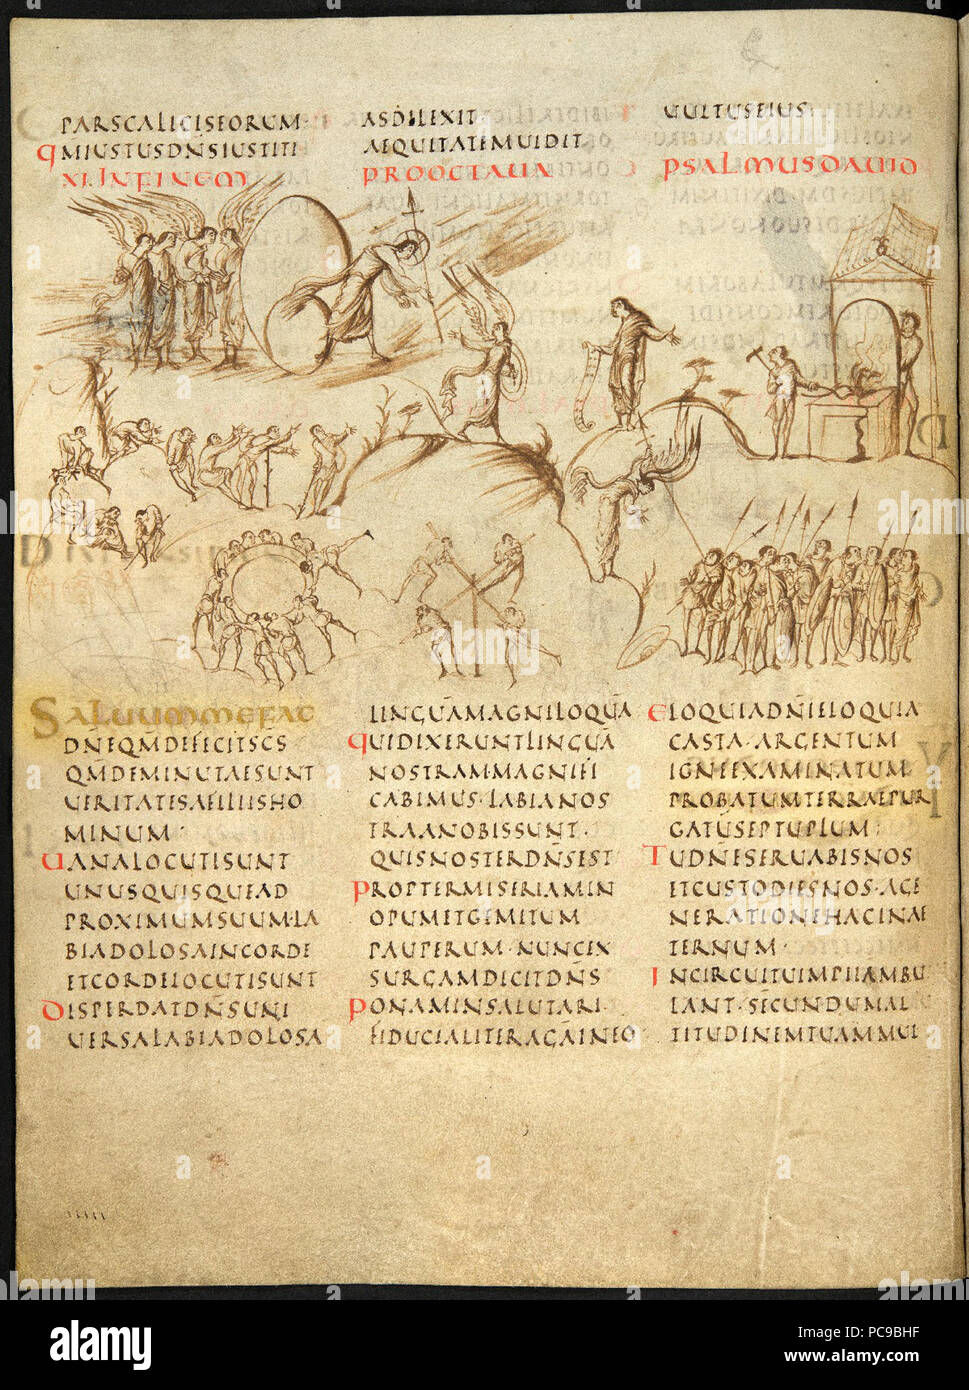 PARSCALICISEORUM
QMIUSTUSDN̄SIUSTITI
XI. INFINEM
ASDILEXIT
AEQUITATEMUIDIT
PROOCTAUA
UULTUSEIUS
PSALMUSDAUID
SALUUMMEFAC
DN̄EQM̄DEFECITSC̄S
QM̄DEMINUTAESUNT
UERITATESAFILIISHO
MINUM·
UANALOCUTISUNT
UNUSQUISQUEAD
PROXIMUMSUUM·LA
BIADOLOSAINCORDE
ETCORDELOCUTISUNT
DISPERDATDN̄SUNI
UERSALABIADOLOSA
LINGUĀMAGNILOQUĀ
QUIDIXERUNTLINGUĀ
NOSTRAMMAGNIFI
CABIMUS·LABIANOS
TRAANOBISSUNT·
QUISNOSTERDN̄SEST
PROPTERMISERIAMIN
OPUMETGEMITUM
PAUPERUM·NUNCEX
SURGAMDICITDN̄S
PONAMINSALUTARI·
FIDUCIALITERAGĀINEO
ELOQUIADN̄IELOQUIA
CASTA·ARGENTUM
IGNEEXAMINATUM
PROBATUMTERRAEPUR
GATŪSEPTUPLUM·
TUDN̄ESERUABISNOS
ETCUSTODIESNOS·AGE
NERATIONEHACINAE
TERNUM·
INCIRCUITUIMPIIAMBU
LANT·SECUNDUMAL
TITUDINEMTUAMMUL
alamy
Image ID: PC9BHF
www.alamy.com